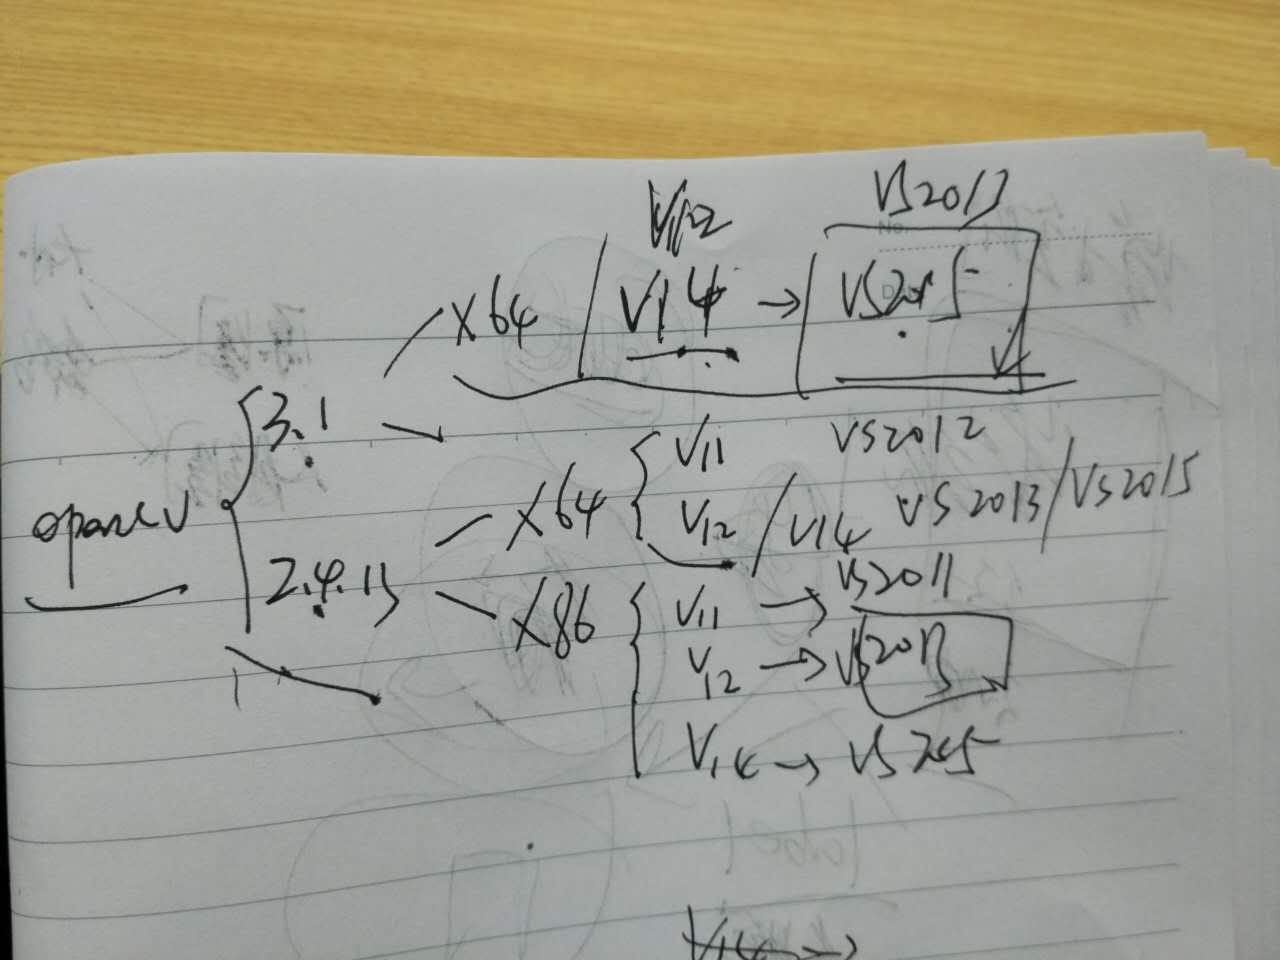 V12 VS2013
x64 / V14 → VS2015
3.1
V11 VS2012
opencv
x64 V12 / V14 VS2013/VS2015
2.4.13
x86 V11 → VS2011
V12 → VS2013
V14 → VS2015
V14 →